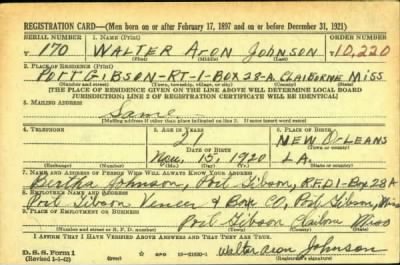 REGISTRATION CARD—(Men born on or after February 17, 1897 and on or before December 31, 1921)
SERIAL NUMBER 1. NAME (Print) ORDER NUMBER
T 170 WALTER ARON JOHNSON 10,220
(First) (Middle) (Last)
2. PLACE OF RESIDENCE (Print)
PORT GIBSON-RT-1-BOX 28-A. CLAIBORNE MISS
(Number and street) (Town, township, village, or city) (County) (State)
[THE PLACE OF RESIDENCE GIVEN ON THE LINE ABOVE WILL DETERMINE LOCAL BOARD
JURISDICTION; LINE 2 OF REGISTRATION CERTIFICATE WILL BE IDENTICAL]
3. MAILING ADDRESS
Same
[Mailing address if other than place indicated on line 2. If same insert word same]
4. TELEPHONE 5. AGE IN YEARS 6. PLACE OF BIRTH
21 NEW ORLEANS
DATE OF BIRTH (Town or county)
Nov. 15, 1920 LA.
(Exchange) (Number) (Mo.) (Day) (Yr.) (State or country)
7. NAME AND ADDRESS OF PERSON WHO WILL ALWAYS KNOW YOUR ADDRESS
Bertha Johnson, Port Gibson, R.F.D 1-Box 28A
8. EMPLOYER'S NAME AND ADDRESS
Port Gibson Veneer & Box Co, Port Gibson, Miss
9. PLACE OF EMPLOYMENT OR BUSINESS
Port Gibson Miss
(Number and street or R. F. D. number) (Town) (County) (State)
I AFFIRM THAT I HAVE VERIFIED ABOVE ANSWERS AND THAT THEY ARE TRUE.
D. S. S. Form 1
(Revised 1-1-42) (over) GPO 16—21630-1 Walter Aron Johnson